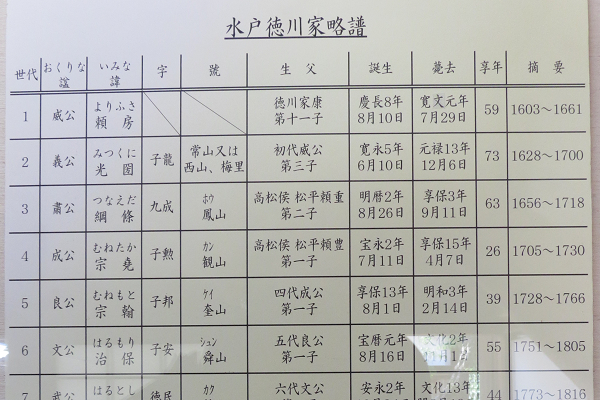 水戸徳川家略譜
世代 おくりな 諡 いみな 諱 字 號 生 父 誕生 薨去 享年 摘 要
1 威公 よりふさ 頼房 徳川家康 第十一子 慶長8年 8月10日 寛文元年 7月29日 59 1603～1661
2 義公 みつくに 光圀 子龍 常山又は 西山、梅里 初代威公 第三子 寛永5年 6月10日 元禄13年 12月6日 73 1628～1700
3 肅公 つなえだ 綱條 九成 ホウ 鳳山 高松侯 松平頼重 第二子 明暦2年 8月26日 享保3年 9月11日 63 1656～1718
4 成公 むねたか 宗堯 子勲 カン 観山 高松侯 松平頼豊 第一子 宝永2年 7月11日 享保15年 4月7日 26 1705～1730
5 良公 むねもと 宗翰 子邦 ケイ 奎山 四代成公 第一子 享保13年 8月1日 明和3年 2月14日 39 1728～1766
6 文公 はるもり 治保 子安 シュン 舜山 五代良公 第一子 宝暦元年 8月16日 文化2年 11月1日 55 1751～1805
7 武公 はるとし 徳民 カク 六代文公 安永2年 文化13年 44 1773～1816